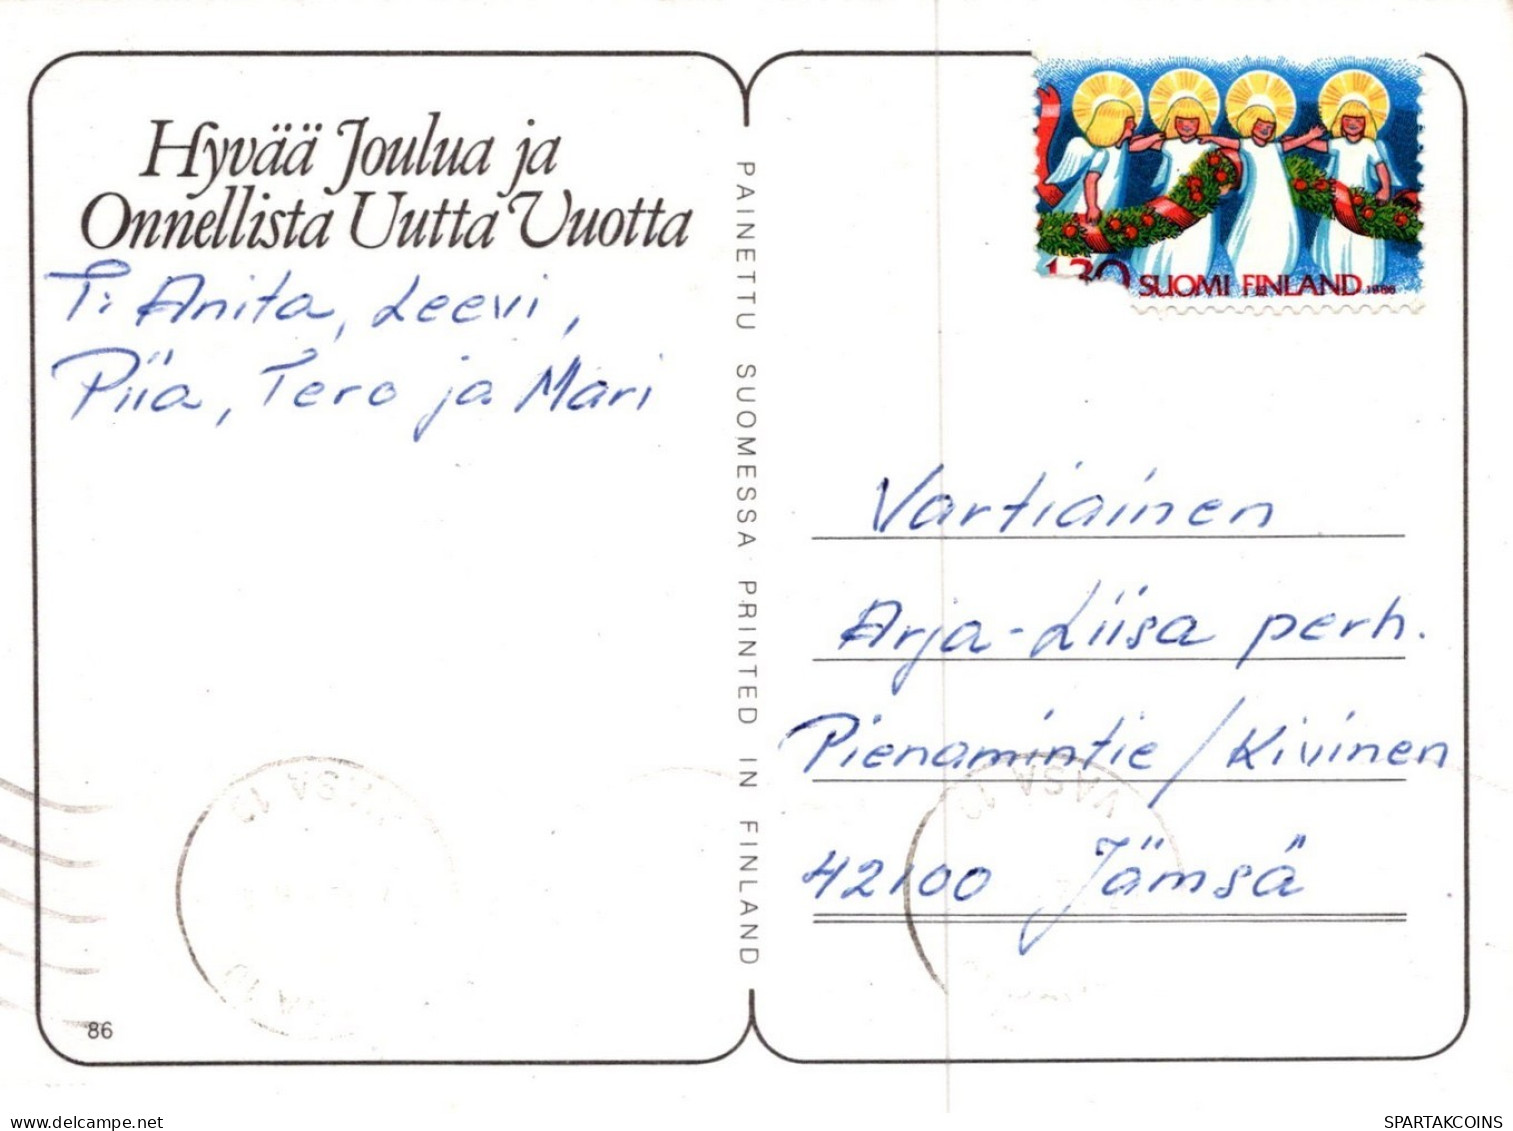 Hyvää Joulua ja
Onnellista Uutta Vuotta
T: Anita, Leevi,
Piia, Tero ja Mari
86
PAINETTU SUOMESSA · PRINTED IN FINLAND
1.30 SUOMI FINLAND 1986
Vartiainen
Arja-Liisa perh.
Pienamintie / Kivinen
42100 Jämsä
VASA 10
VASA 10
SPARTAKCOINS